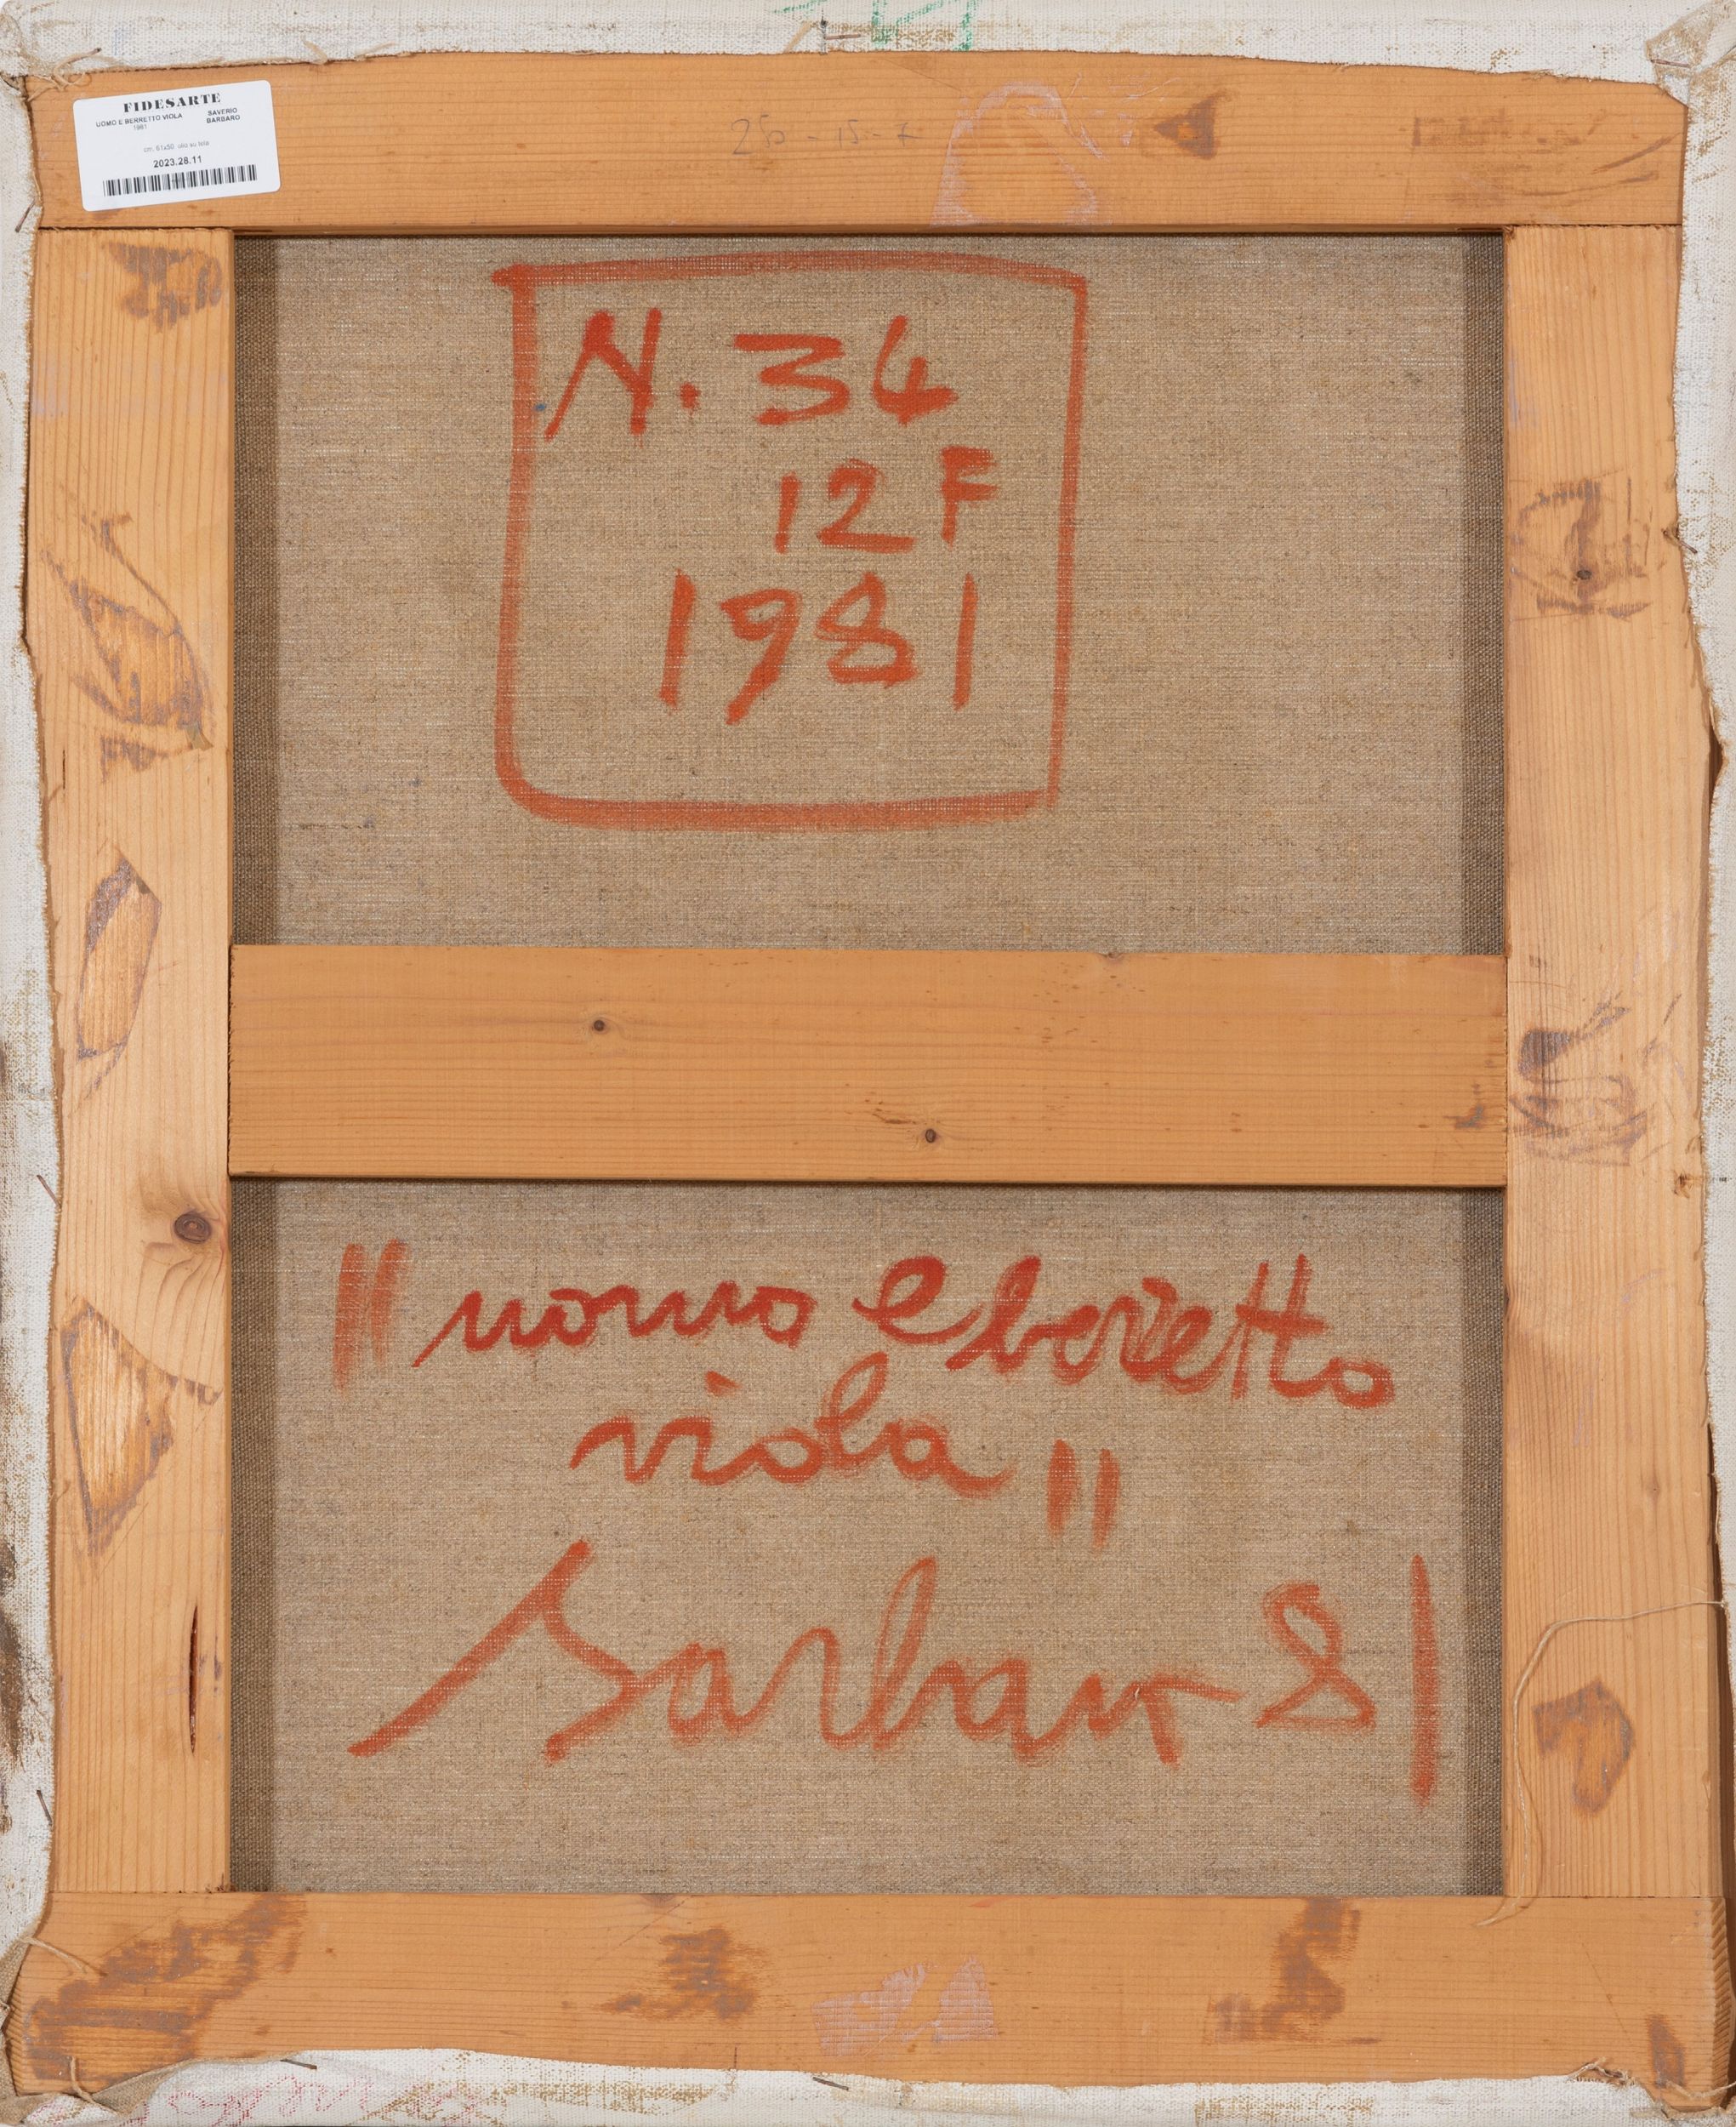 FIDESARTE
UOMO E BERRETTO VIOLA SAVERIO BARBARO
1981
cm. 61x50 olio su tela
2023.28.11
N. 34
12 F
1981
"uomo e berretto
viola"
Barbaro 81